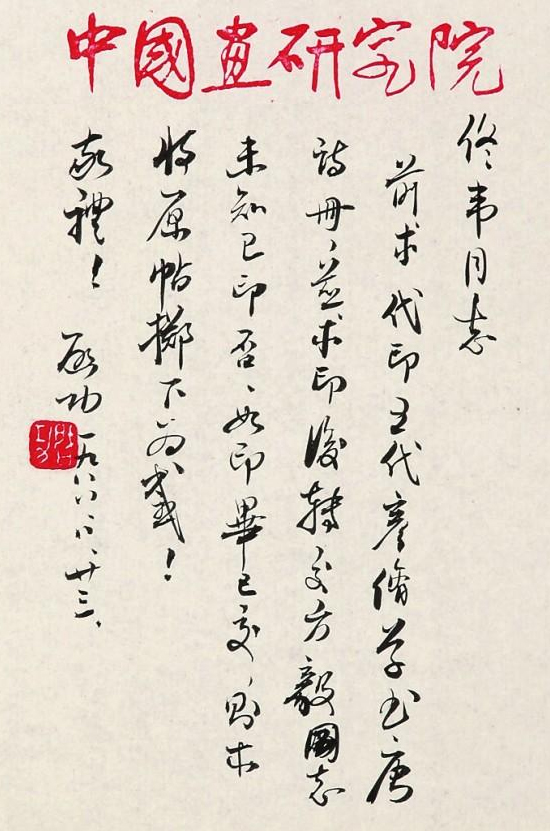 中國畫研究院
佟韋同志
前求代印五代彥脩草书唐
詩冊、並求印後轉交方毅同志
未知已印否、如印畢已交、則求
將原帖擲下为感！
敬禮！ 啟功 一九八八、八、廿三、